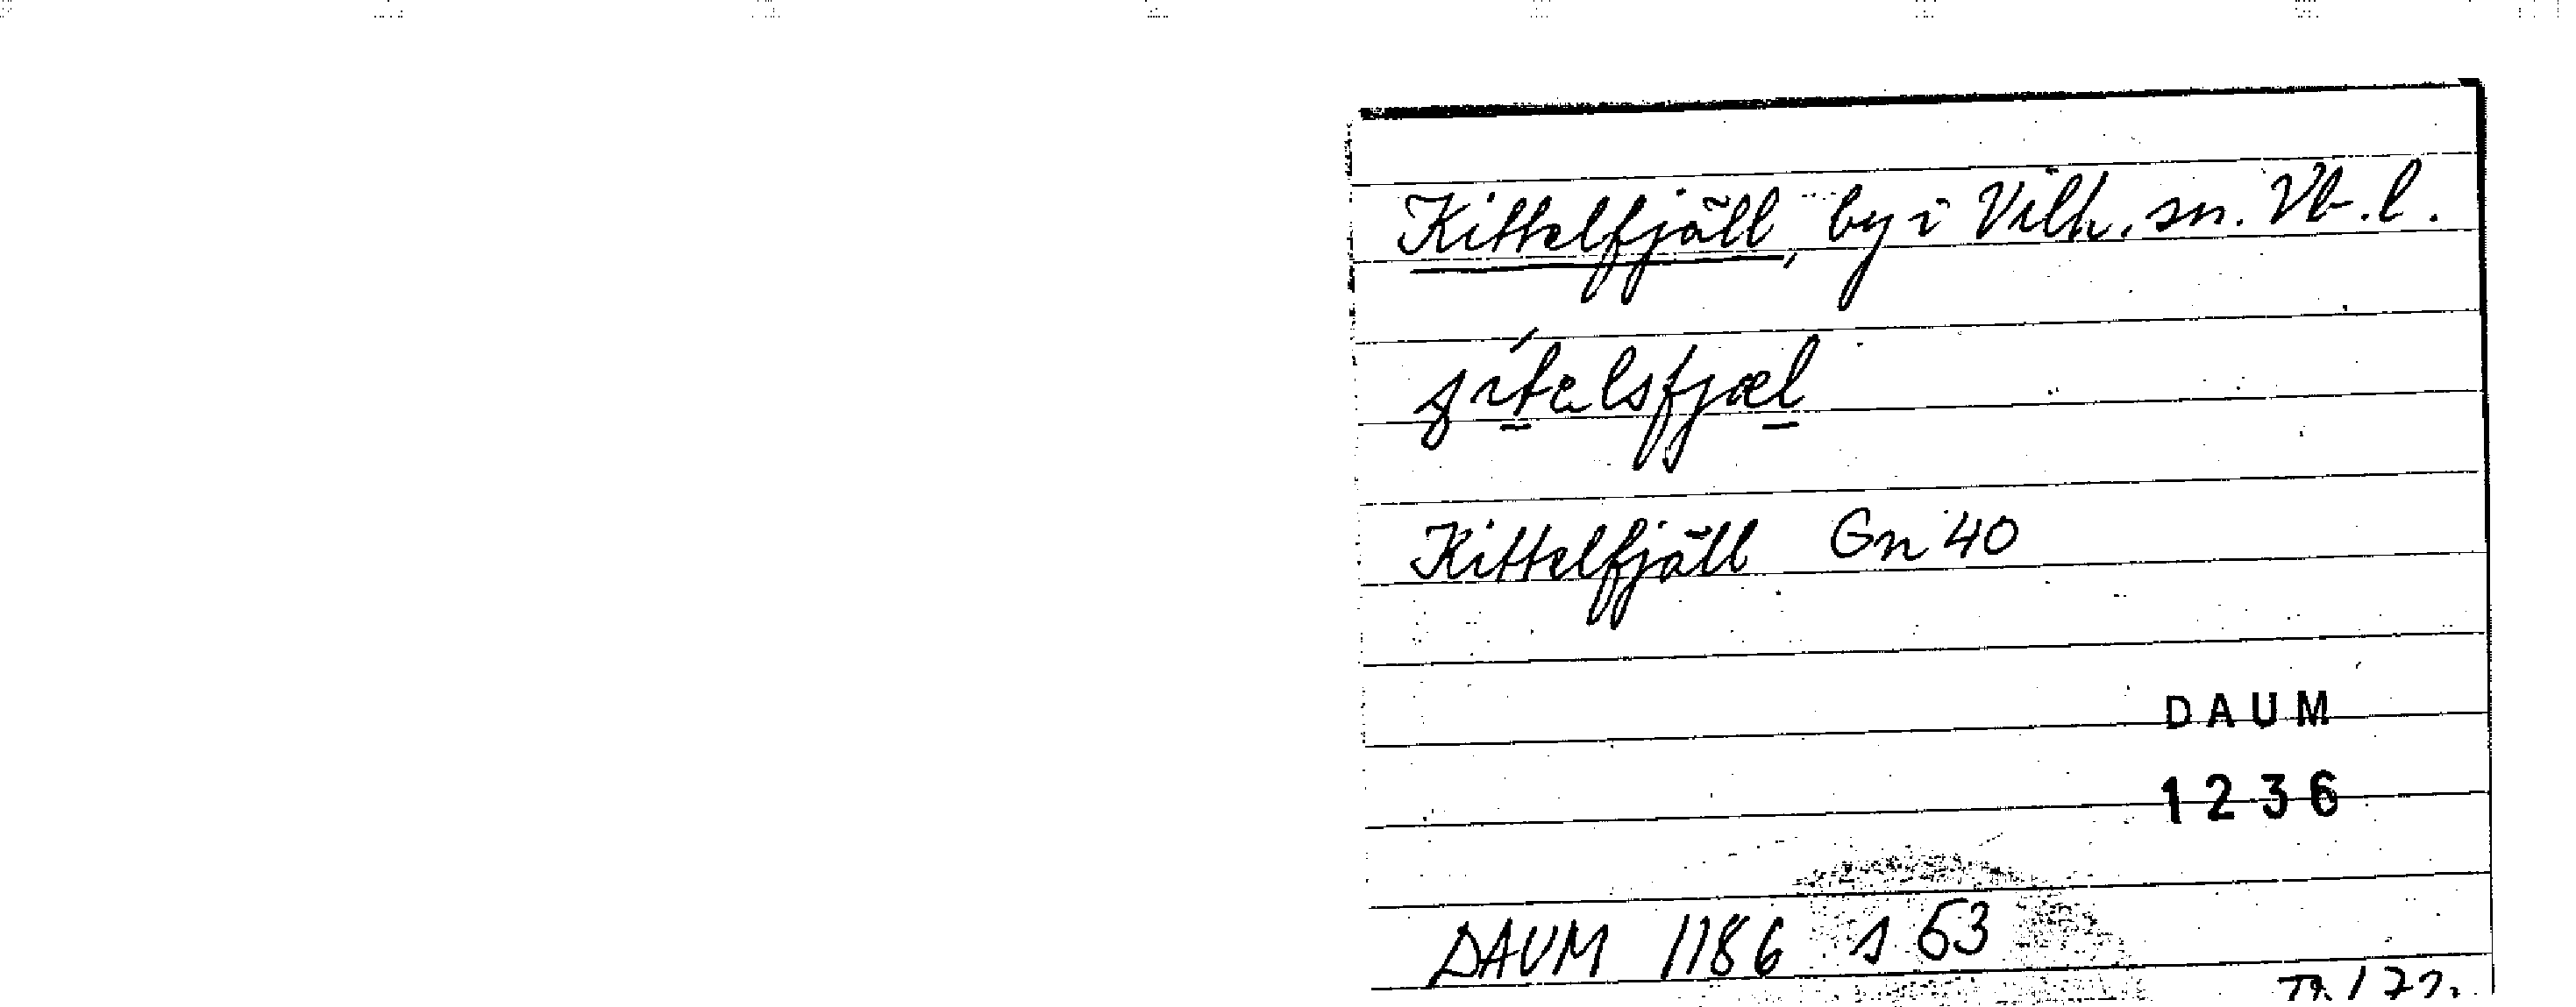 Kittelfjäll, by i Vilh. sn. Vb. l.
Kittelfjäll Gn 40
DAUM
1236
DAUM 1186 s 53